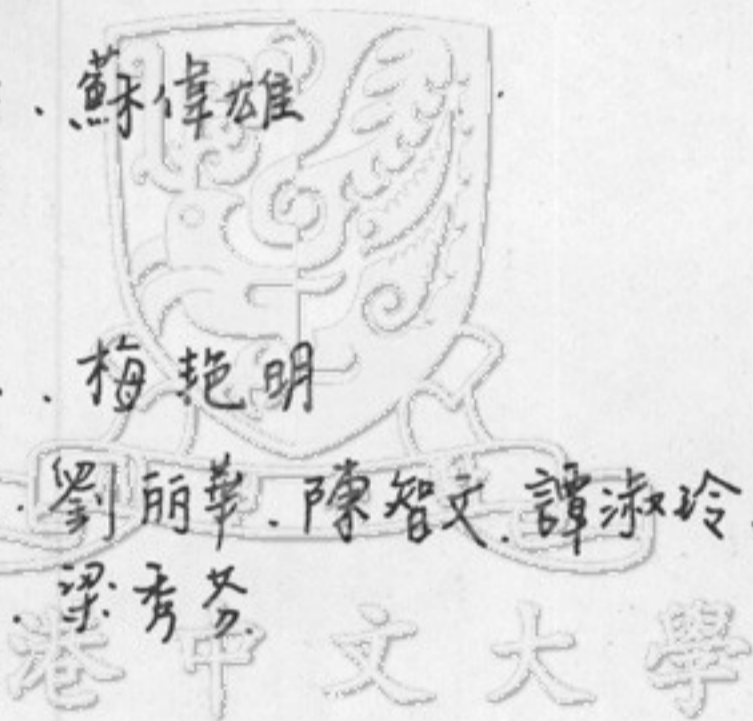 蘇偉雄
梅艳明
劉丽華.陳智文.譚淑玲.
梁秀芬
港中文大學